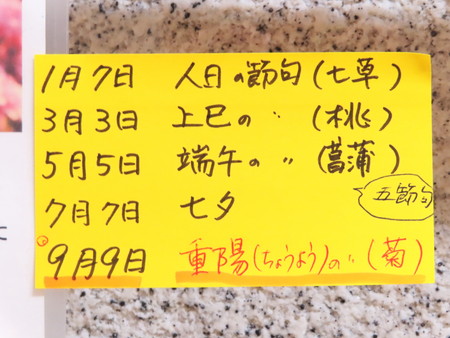 1月7日 人日の節句(七草)
3月3日 上巳の 〃 (桃)
5月5日 端午の 〃 (菖蒲)
五節句
7月7日 七夕
9月9日 重陽(ちょうよう)の 〃 (菊)